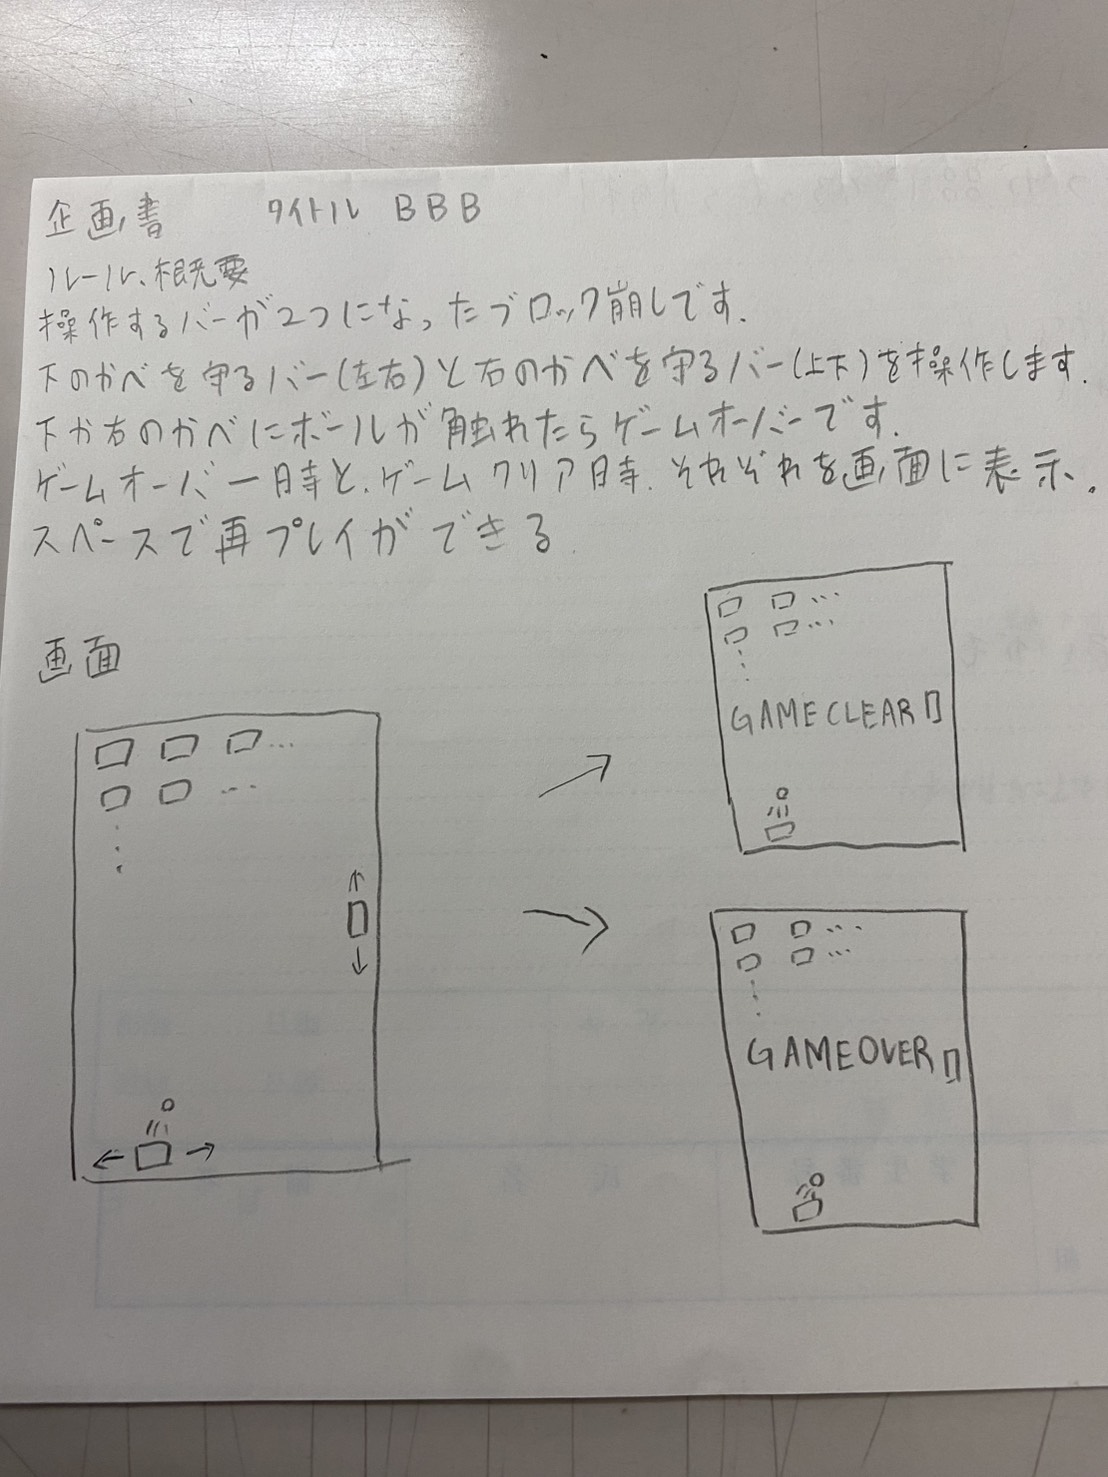 企画書　タイトル BBB
ルール、概要
操作するバーが2つになったブロック崩しです.
下のかべを守るバー(左右)と右のかべを守るバー(上下)を操作します.
下か右のかべにボールが触れたらゲームオーバーです.
ゲームオーバー時と、ゲームクリア時、それぞれを画面に表示.
スペースで再プレイができる
画面
GAMECLEAR
GAMEOVER